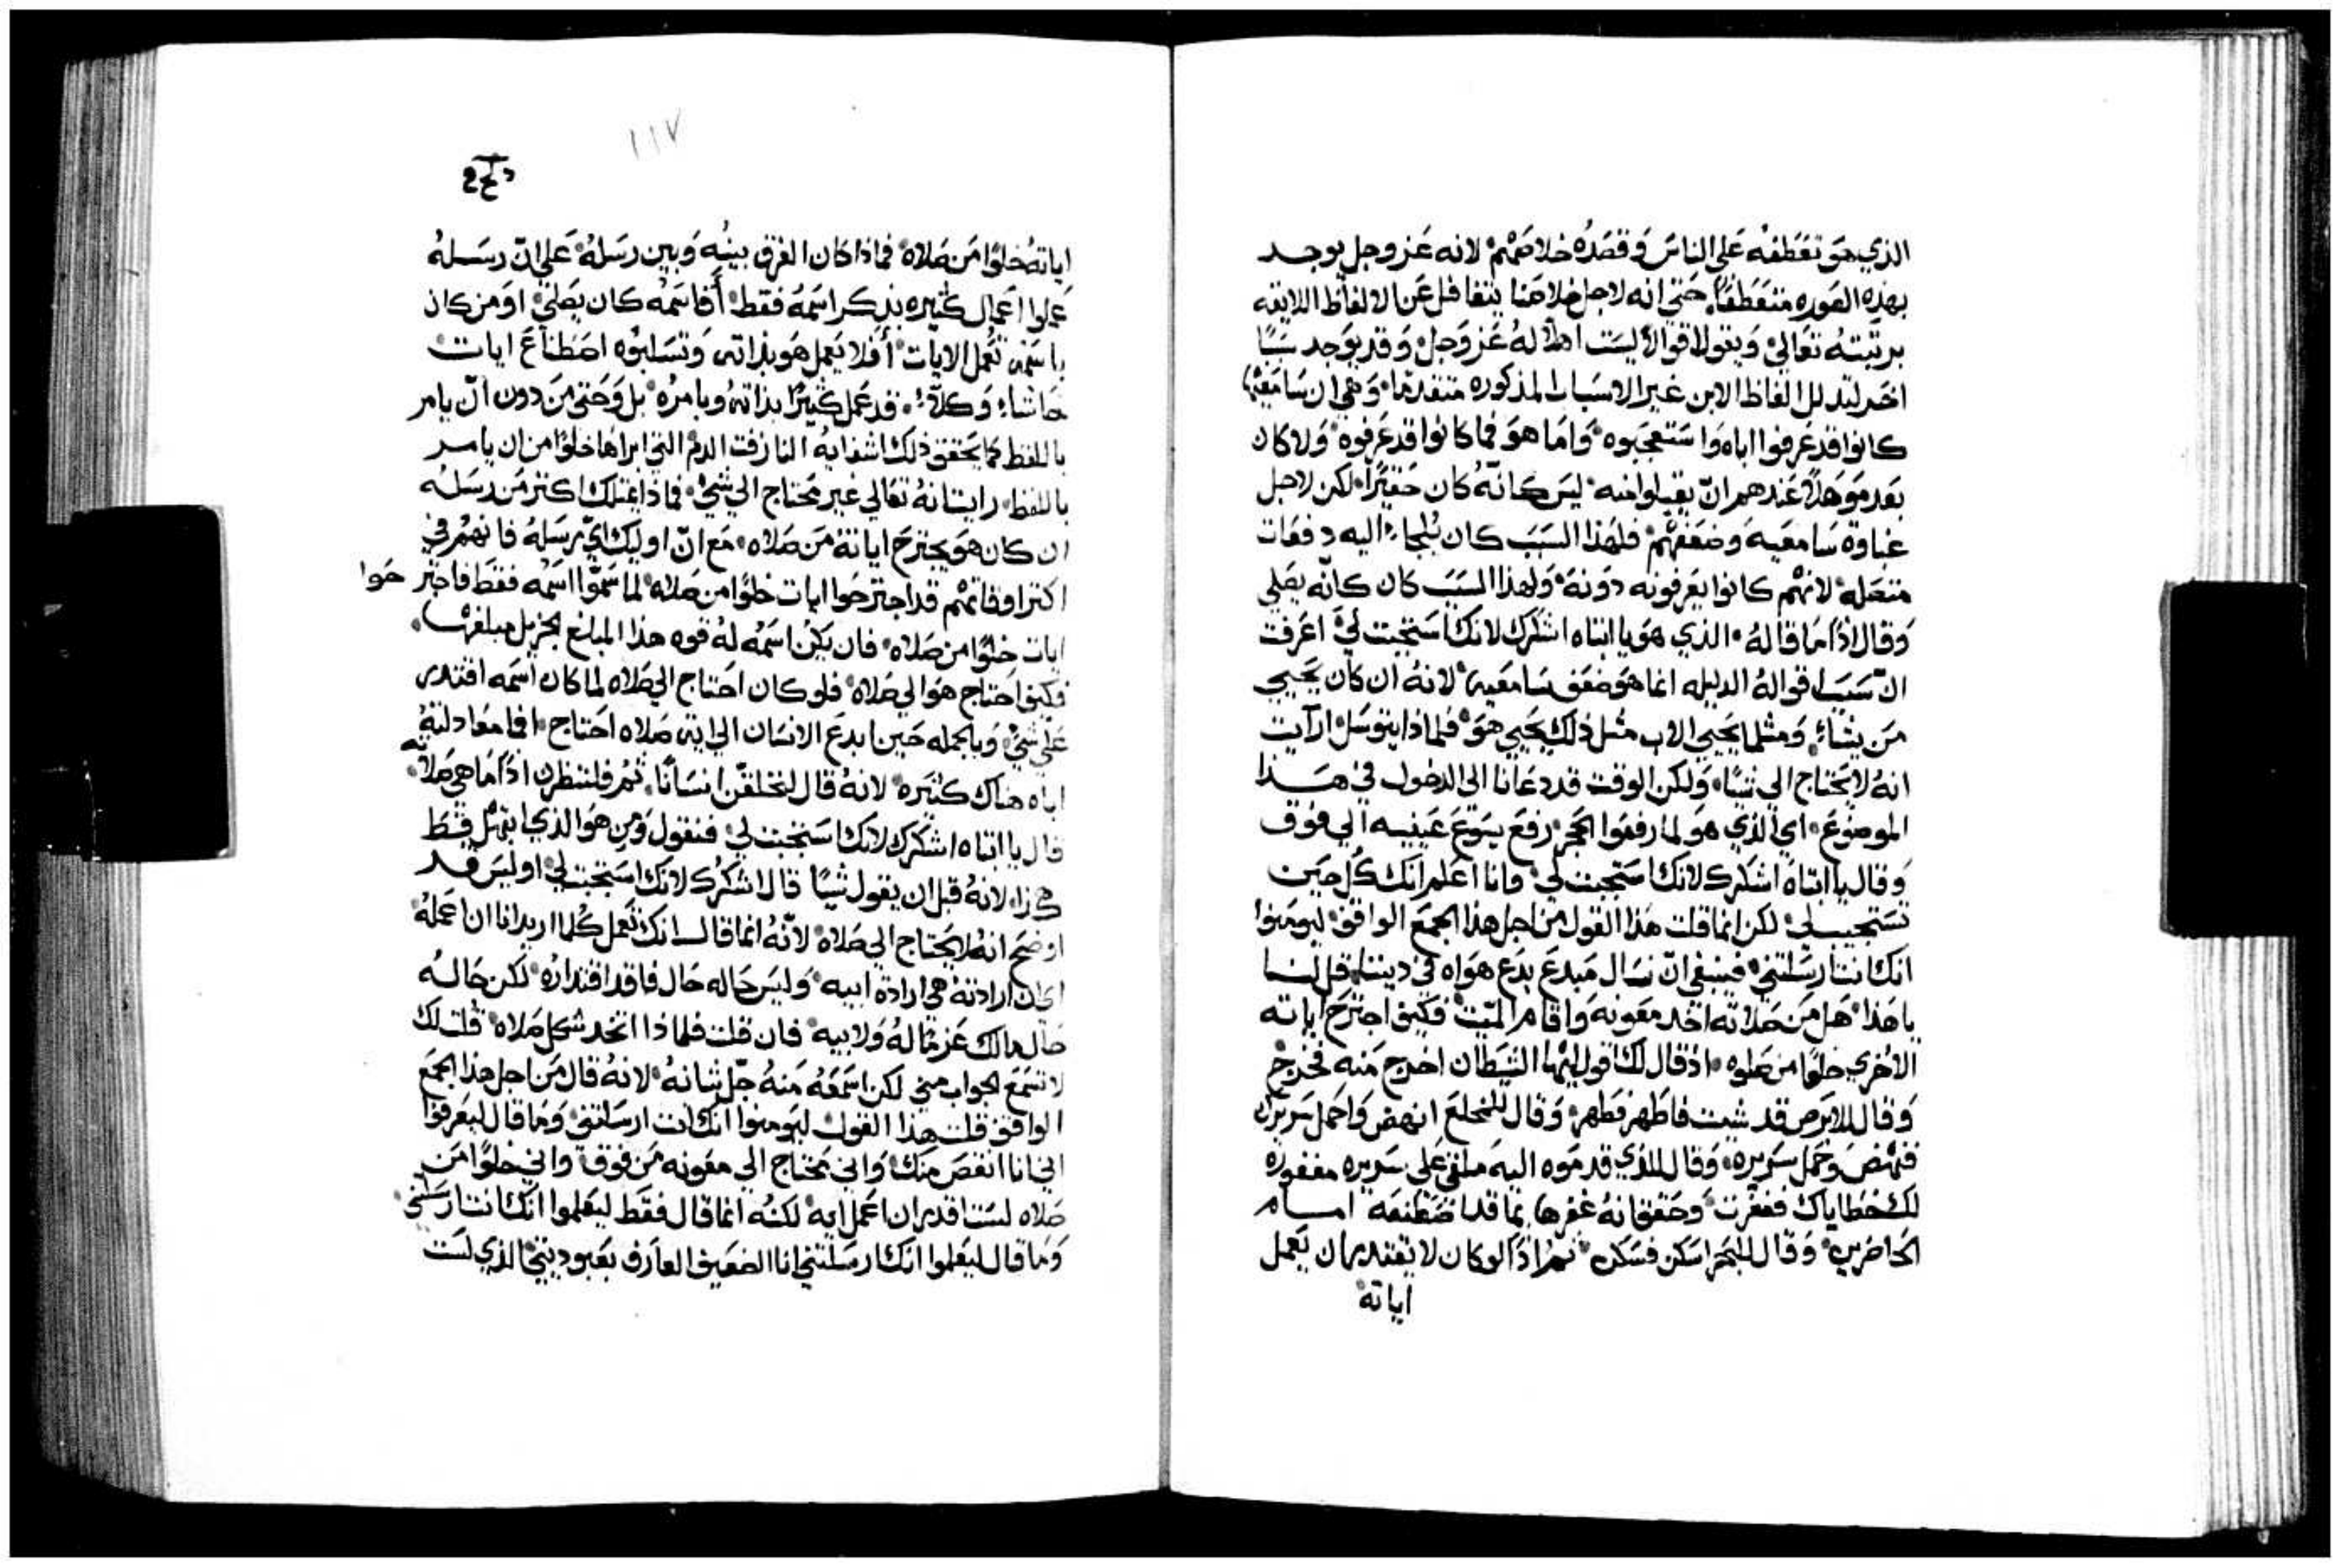 الذي هو تعطفه على الناس وقصده خلاصهم لانه عز وجل يوجد
بهذه الصوره متعطفًا حتى انه لاجل خلاصنا يتغافل عن الالفاظ اللايقه
برتبته تعالى ويقول اقوالاً ليست اهلاً له عز وجل وقد يوجد سببًا
اخر لتذلل الفاظ الابن غير الاسباب المذكوره متقدمًا وهي ان سامعيه
كانوا قد عرفوا اباه واستعجبوه واما هو فما كانوا قد عرفوه ولا كان
بعد موهلاً عندهم ان يقبلوا منه ليس كانه كان حقيرًا لكن لاجل
غباوة سامعيه وضعفهم فلهذا السبب كان يلجاء اليه دفعات
متصله لانهم كانوا يعرفونه دونه ولهذا السبب كان كانه يصلي
وقال اذًا ما قاله الذي هو يا ابتاه اشكرك لانك استجبت لي اعرفت
ان سبب اقواله الدليله انما هو ضعف سامعيه لانه ان كان يحيي
من يشاء ومثلما يحيي الاب مثل ذلك يحيي هو فلماذا يتوسل ارايت
انه لا يحتاج الى شيًا ولكن الوقت قد دعانا الى الدخول في هذا
الموضوع اي الذي هو لما رفعوا الحجر رفع يسوع عينيه الى فوق
وقال يا ابتاه اشكرك لانك استجبت لي وانا اعلم انك كل حين
تستجيب لي لكن انما قلت هذا القول من اجل هذا الجمع الواقف ليومنوا
انك انت ارسلتني فينبغي ان نسال مبدع بدع هواه في ديننا قل لنا
يا هذا هل من صلاته اتخد معونه واقام الميت فكيف اجترح اياته
الاخري خلوًا من صلوه اذ قال لك اقول ايها الشيطان اخرج منه فخرج
وقال للابرص قد شيت فاطهر فطهر وقال للمخلع انهض واحمل سريرك
فنهض وحمل سريره وقال للذي قدموه اليه ملقى على سريره مغفوره
لك خطاياك فغفرت وحقق انه غفرها بما قد اصطنعه امام
الحاضرين وقال للبحر اسكن فسكن ثم اذًا لو كان لا يقتدر ان يعمل
اياته
١١٧
اياته خلوًا من صلاه فماذا كان الفرق بينه وبين رسله على ان رسله
عملوا اعمال كثيره بذكر اسمه فقط أفاسمه كان يصلي او من كان
باسمه تعمل الايات أفلا يعمل هو بذاته وتسلبوه اصطناع ايات
حاشاء وكلاء قد عمل كثيرًا بذاته وبامره بل وحتى من دون ان يامر
باللفظ كما يحقق ذلك اشفايه النازفت الدم التي ابراها خلوًا من ان يامر
باللفظ رايت انه تعالي غير محتاج الى شي فماذا يمتلك اكتر من رسله
ان كان هو يجترح اياته من صلاه مع ان اوليك اي رسله فانهم في
اكتر اوقاتهم قد اجترحوا ايات خلوًا من صلاه لما سموا اسمه فقط فاجترحوا
ايات خلوًا من صلاه فان يكن اسمه له قوه هذا المبلغ الجزيل مبلغها
فكيف احتاج هو الى صلاه فلو كان احتاج الى صلاه لما كان اسمه اقتدر
على شي وبالجمله حين ابدع الانسان الى اية صلاه احتاج افما معادلته
اباه هناك كثيره لانه قال لنخلقن انسانًا ثم فلننظرن اذًا ما هي صلاته
قال يا ابتاه اشكرك لانك استجبت لي فنقول ومن هو الذي ابتهل قط
هكذا لانه قبل ان يقول شيًا قال اشكرك لانك استجبت لي اوليس قد
اوضح انه لا يحتاج الى صلاه لانه انما قال انك تعمل كلما اريد انا ان اعمله
اي ان ارادته هي ارادة ابيه وليس حاله حال فاقد اقتداره لكن حاله
حال مالك عزمًا له ولابيه فان قلت فلماذا اتخد شكل صلاه قلت لك
لا تسمع الجواب مني لكن اسمعه منه جل شانه لانه قال من اجل هذا الجمع
الواقف قلت هذا القول ليومنوا انك انت ارسلتني وما قال ليعرفوا
اني انا انقص منك واني محتاج الى معونه من فوق واني خلوًا من
صلاه لست اقدر ان اعمل ايه لكنه انما قال فقط ليعلموا انك انت ارسلتني
وما قال ليعلموا انك ارسلتني انا الضعيف العارف بعبوديتي الذي لست